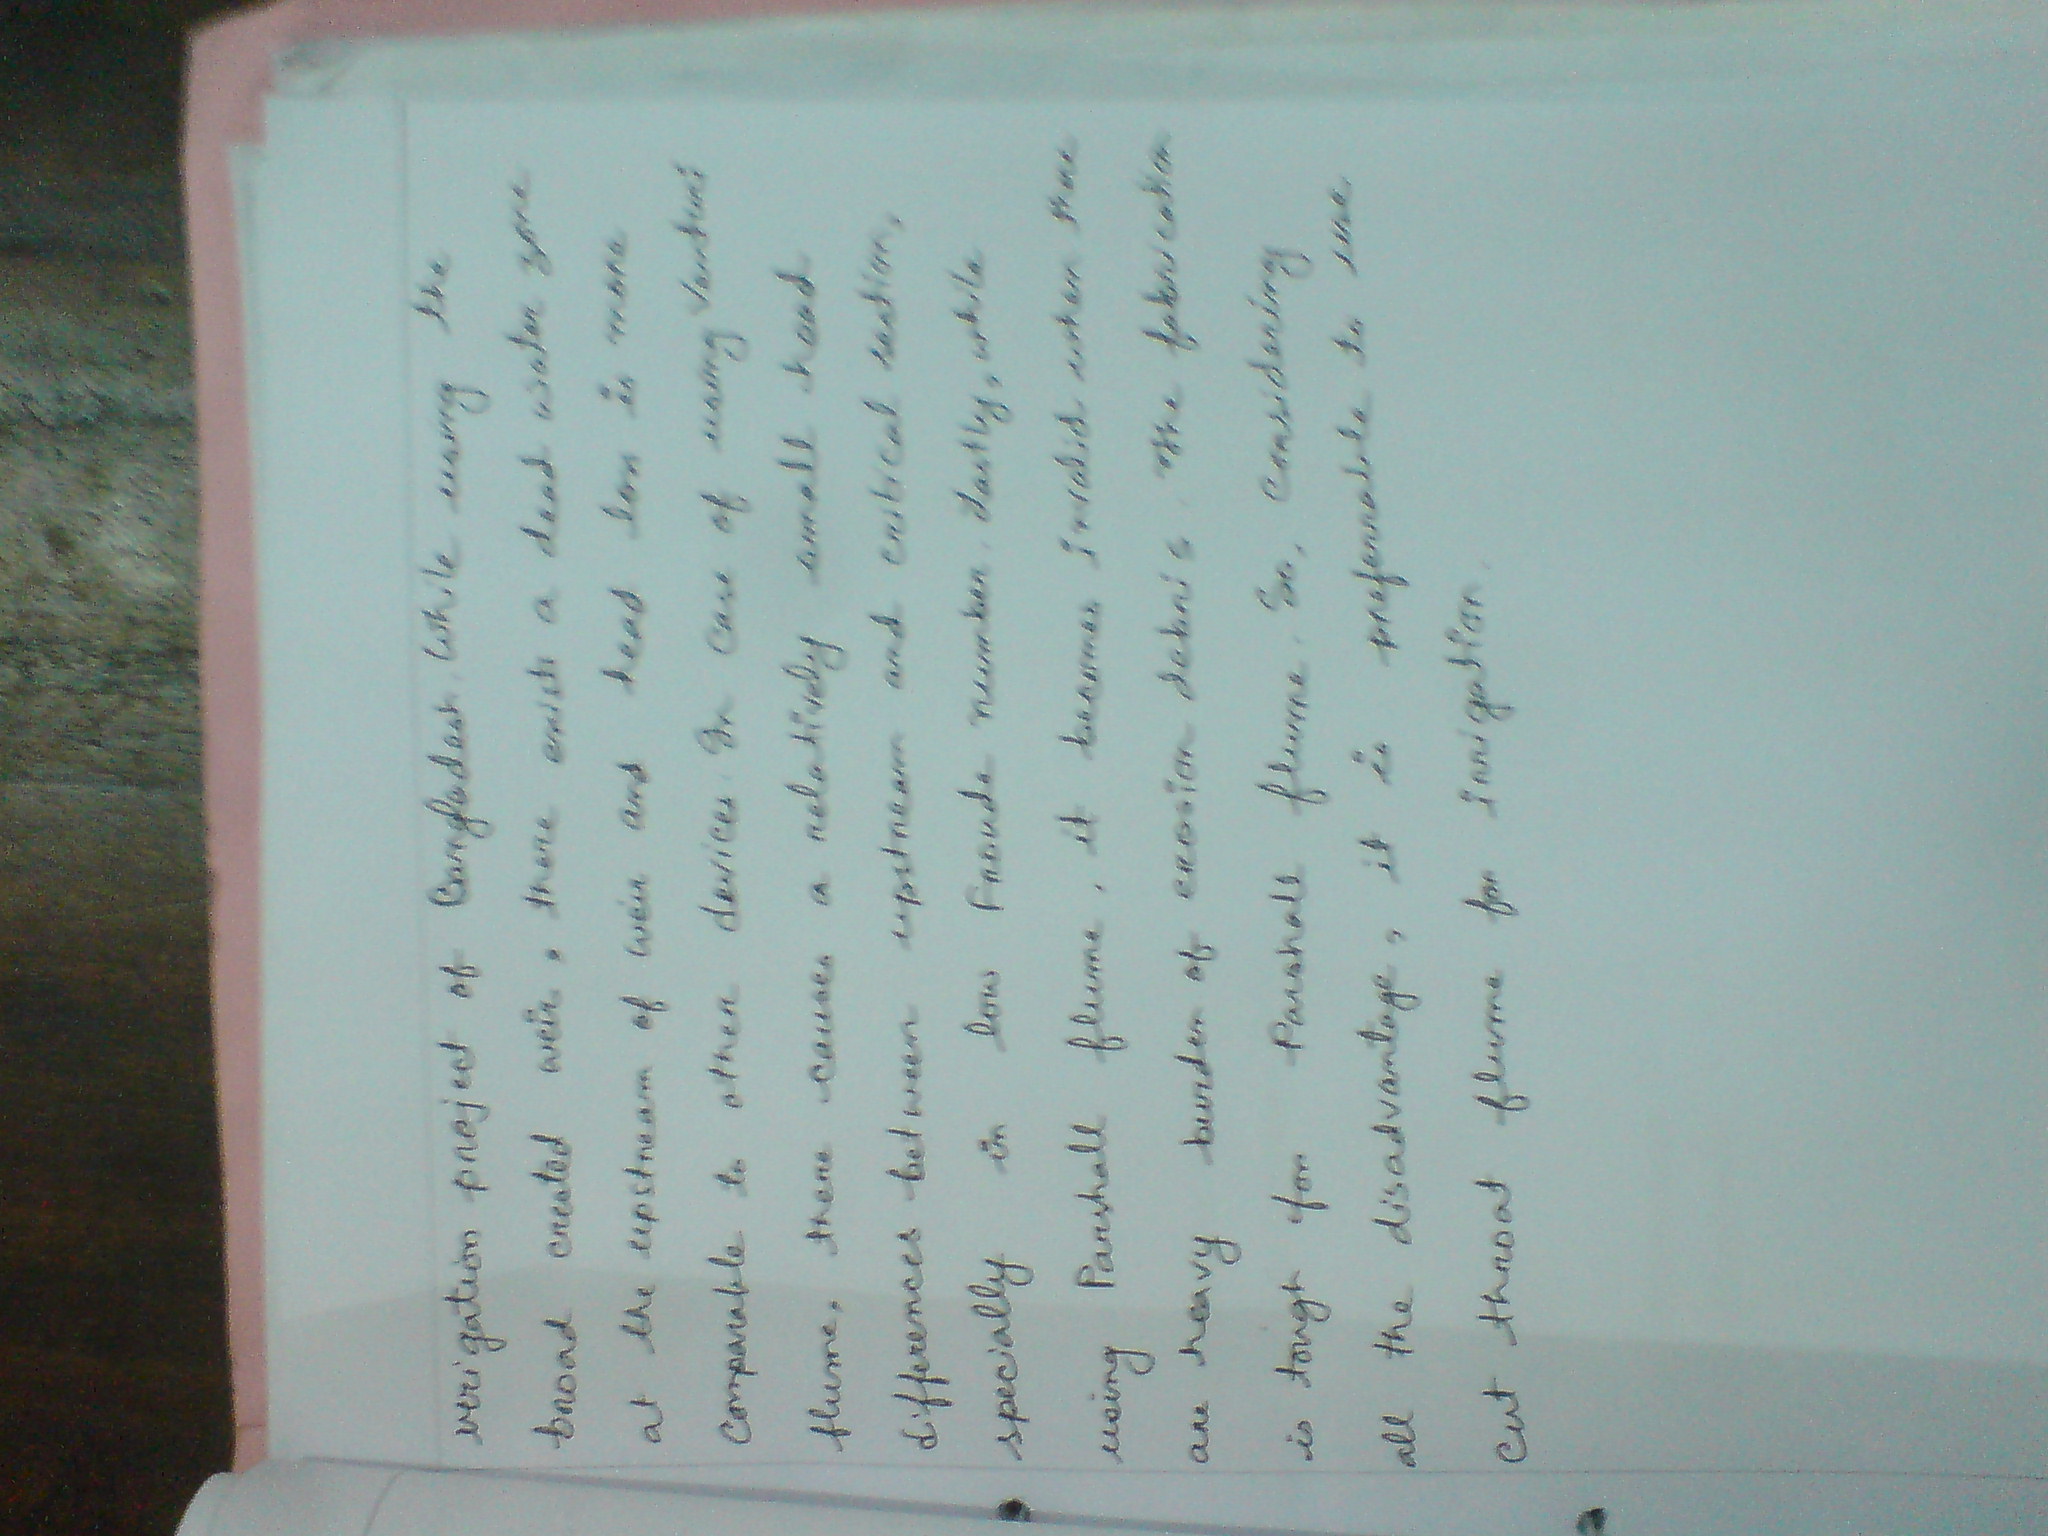 irrigation project of Bangladesh. While using the
broad crested weir, there exists a dead water zone
at the upstream of weir and head loss is more
comparable to other devices. In case of using Venturi
flume, there causes a relatively small head
differences between upstream and critical section,
specially in low Froude number. Lastly, while
using Parshall flume, it becomes invalid when there
are heavy burden of erosion debris. The fabrication
is tough for Parshall flume. So, considering
all the disadvantage, it is preferrable to use
Cut throat flume for irrigation.